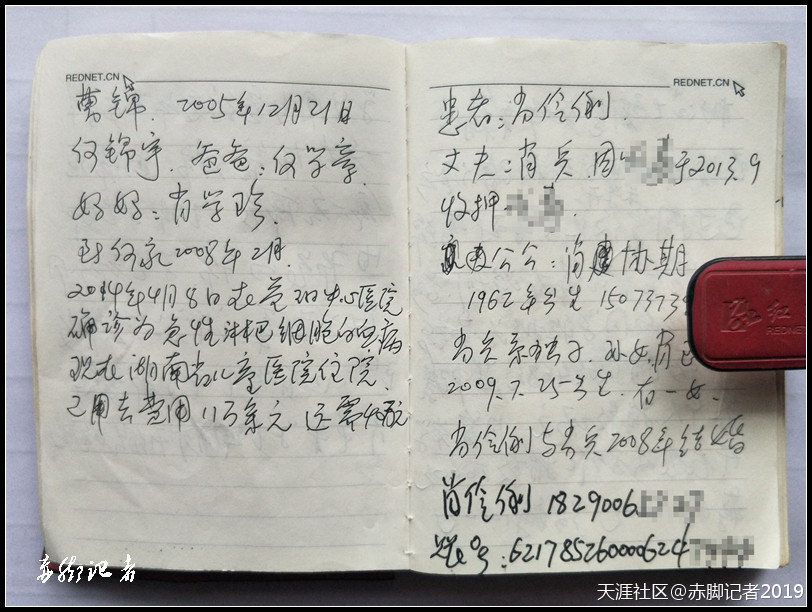 REDNET.CN
曹锦. 2005年12月21日
何锦宇. 爸爸：何学章.
妈妈：肖学珍.
到何家2008年2月.
2014年4月8日在益阳中心医院
确诊为急性淋巴细胞白血病
现在湖南省儿童医院住院.
已用去费用11万余元 还需
REDNET.CN
患者：肖伶俐.
丈夫：肖兵.因 于2013.9
收押
公公：肖建协 期
1962年出生 1507373
肖兵系独子. 孙女 肖
2009.7.25出生. 有一女.
肖伶俐与肖兵2008年结婚
肖伶俐 1829006
账号：6217852600006247
红
REDNET
赤脚记者
天涯社区@赤脚记者2019